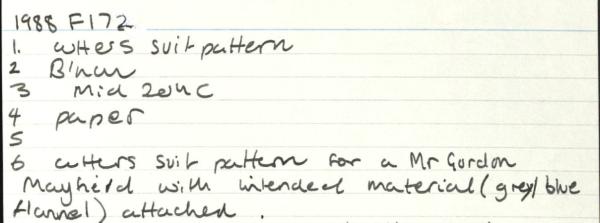 1988 F172
1. cutters suit pattern
2 B'ham
3 Mid 20thC
4 paper
5
6 cutters suit pattern for a Mr Gordon
Mayfield with intended material (grey/blue
flannel) attached.